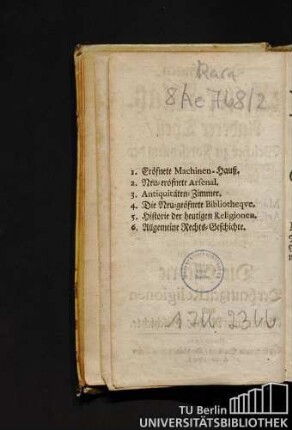 Rara
8 Ae 748/2
1. Eröfnete Machinen-Hauß.
2. Neu-eröfnete Arsenal.
3. Antiquitäten-Zimmer.
4. Die Neu-geöfnete Bibliotheqve.
5. Historie der heutigen Religionen.
6. Allgemeine Rechts-Geschichte.
TU Berlin
UNIVERSITÄTSBIBLIOTHEK